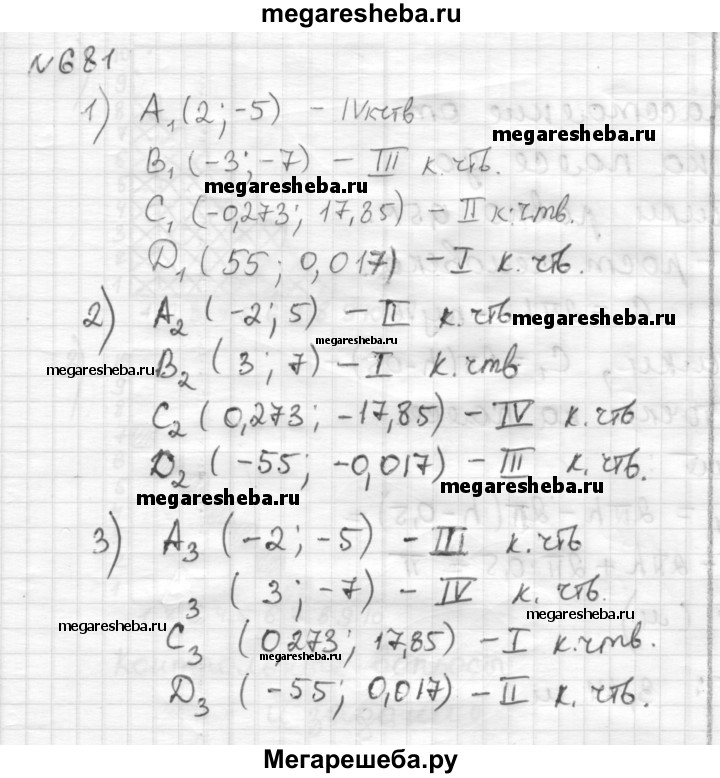 megaresheba.ru
№681
1) A₁(2; -5) - IV к.чтв
megaresheba.ru
B₁(-3; -7) - III к.чтв.
megaresheba.ru
C₁(-0,273; 17,85) - II к.чтв.
D₁(55; 0,017) - I к.чтв.
2) A₂(-2; 5) - II к.чтв
megaresheba.ru
megaresheba.ru
megaresheba.ru
B₂(3; 7) - I к.чтв
C₂(0,273; -17,85) - IV к.чтв
D₂(-55; -0,017) - III к.чтв.
megaresheba.ru
megaresheba.ru
3) A₃(-2; -5) - III к.чтв
₃(3; -7) - IV к.чтв.
megaresheba.ru
megaresheba.ru
C₃(0,273; 17,85) - I к.чтв.
megaresheba.ru
D₃(-55; 0,017) - II к.чтв.
Мегарешеба.ру